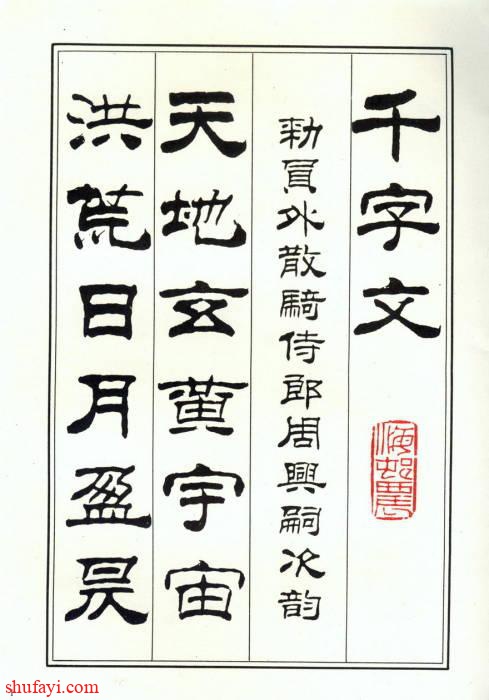 千字文
勑員外散騎侍郎周興嗣次韵
天地玄黃宇宙
洪荒日月盈昃
shufayi.com